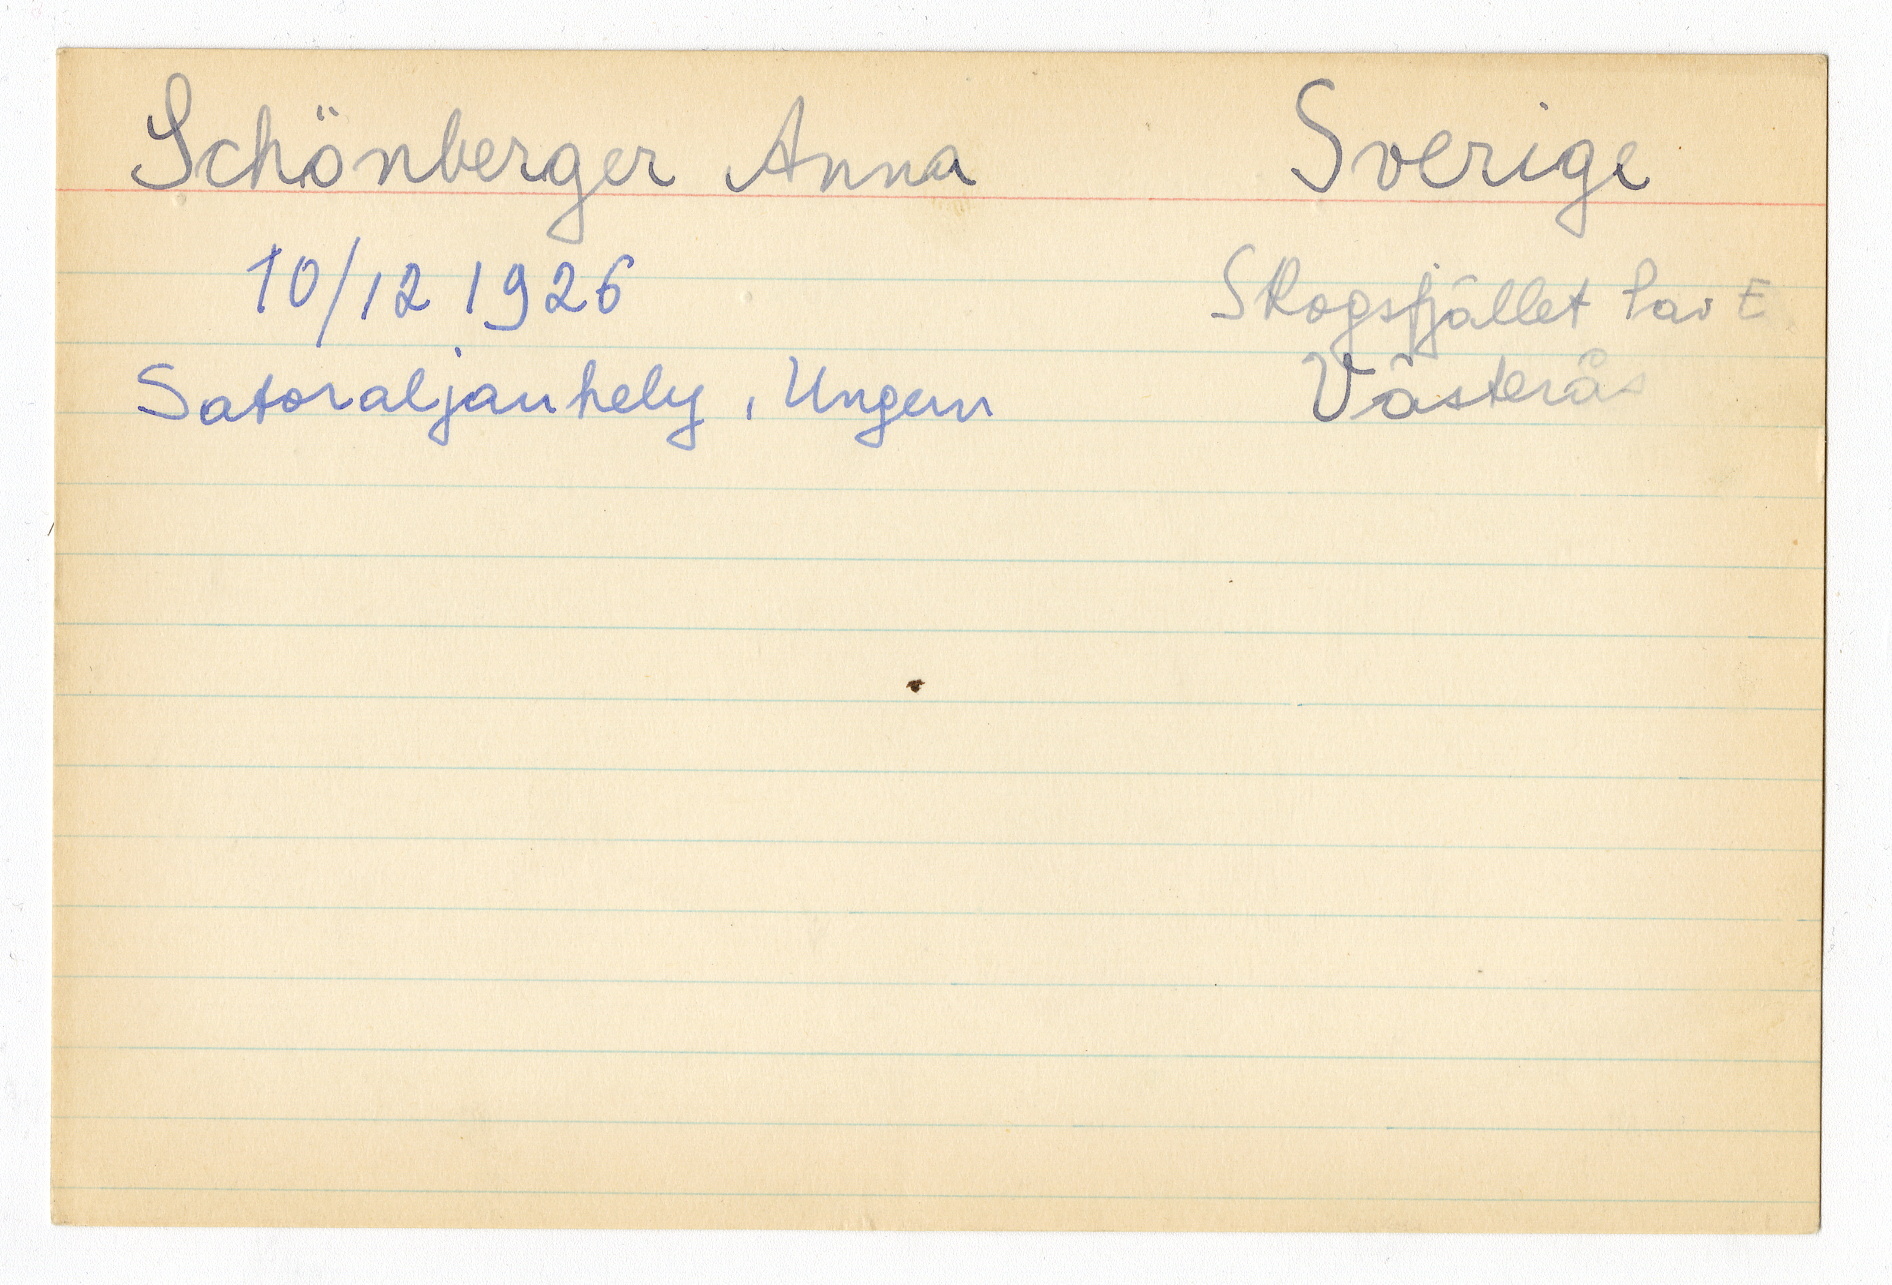 Schönberger Anna Sverige
10/12 1926 Skogsfjället Pav E
Satoraljauhely, Ungern Västerås